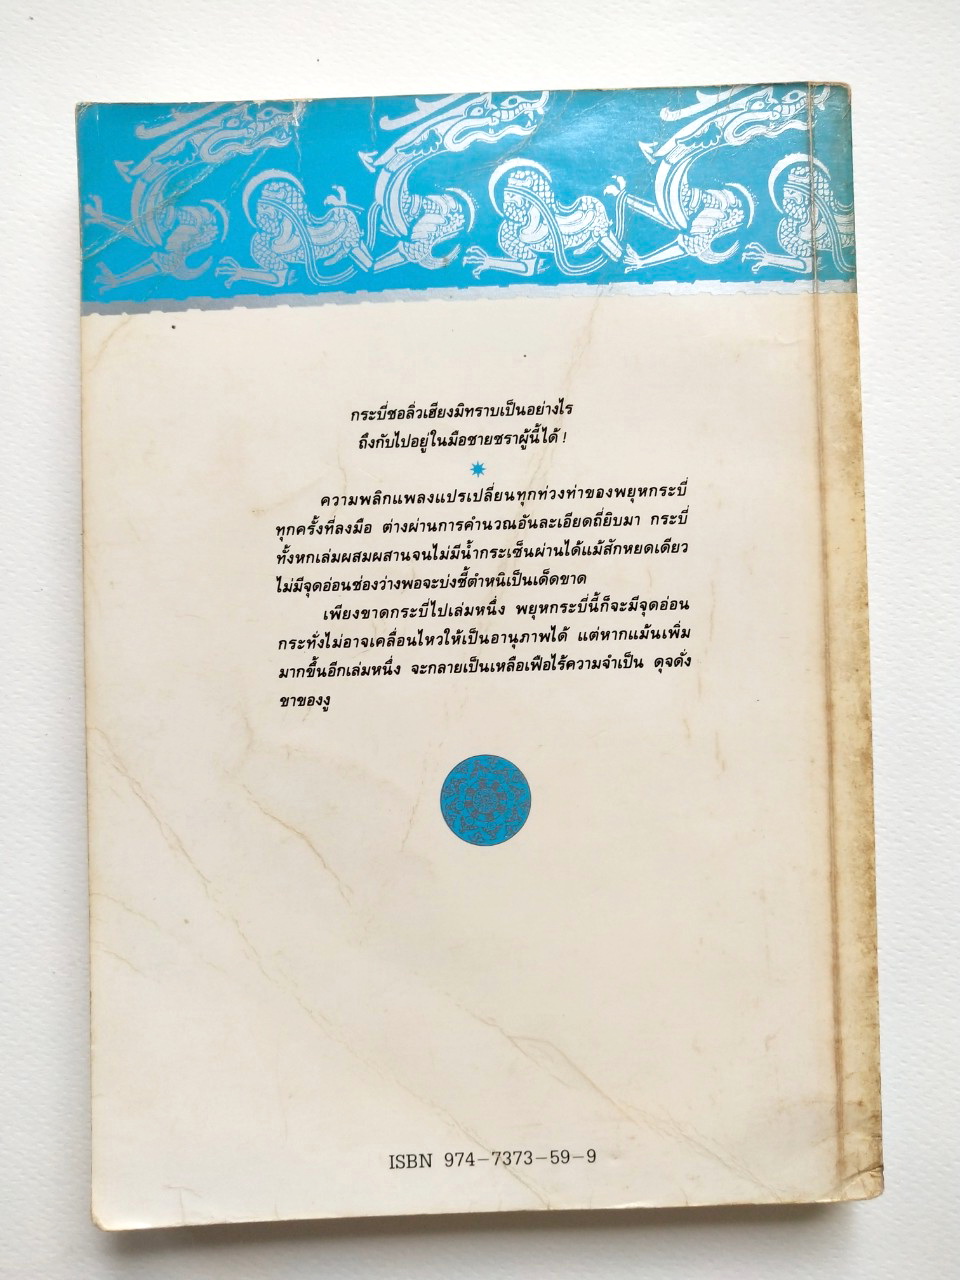 กระบี่ชอลิ่วเฮียงมิทราบเป็นอย่างไร
ถึงกับไปอยู่ในมือชายชราผู้นี้ได้ !
ความพลิกแพลงแปรเปลี่ยนทุกท่วงท่าของพยุหกระบี่
ทุกครั้งที่ลงมือ ต่างผ่านการคำนวณอันละเอียดถี่ยิบมา กระบี่
ทั้งหกเล่มผสมผสานจนไม่มีน้ำกระเซ็นผ่านได้แม้สักหยดเดียว
ไม่มีจุดอ่อนช่องว่างพอจะบ่งชี้ตำหนิเป็นเด็ดขาด
เพียงขาดกระบี่ไปเล่มหนึ่ง พยุหกระบี่นี้ก็จะมีจุดอ่อน
กระทั่งไม่อาจเคลื่อนไหวให้เป็นอานุภาพได้ แต่หากแม้นเพิ่ม
มากขึ้นอีกเล่มหนึ่ง จะกลายเป็นเหลือเฟือไร้ความจำเป็น ดุจดั่ง
ขาของงู
ISBN 974-7373-59-9